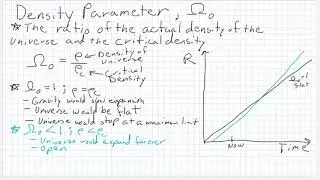 Density Parameter, Ω₀
* The ratio of the actual density of the
universe and the critical density
Ω₀ = ρ/ρc
Density of
universe
Critical
Density
* Ω₀=1 ; ρ=ρc
- Gravity would slow expansion
- Universe would be flat
- Universe would stop at a maximum limit
* Ω₀<1 ; ρ<ρc
- Universe would expand forever
- Open
R
Ω₀=1
flat
Now
Time